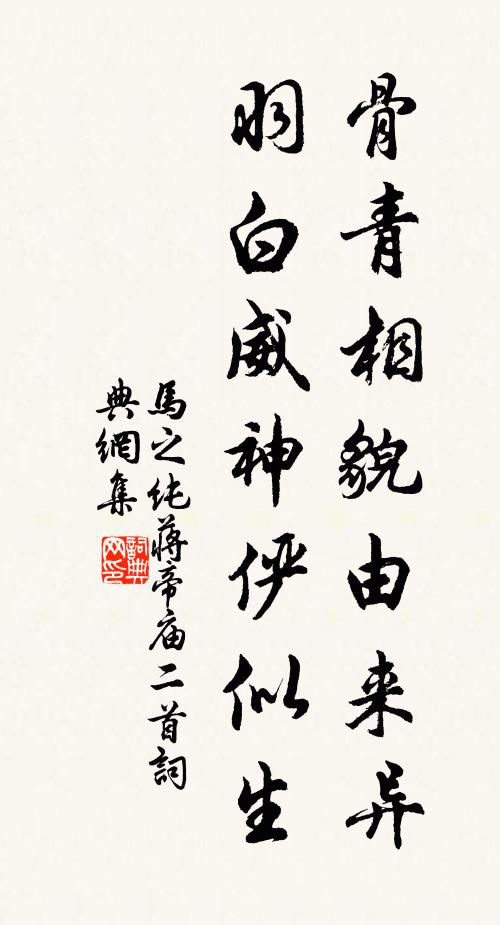 骨青相貌由来异
羽白威神俨似生
馬之纯蔣帝庙二首詞
典網集
詞典
网印